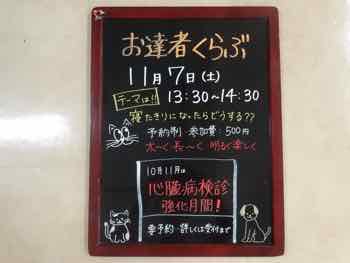 お達者くらぶ
11月7日(土)
テーマは!! 13:30~14:30
寝たきりになったらどうする??
予約制 参加費:500円
太～く長～く 明るく楽しく
10月11月は
心臓病検診
強化月間!
要予約 詳しくは受付まで